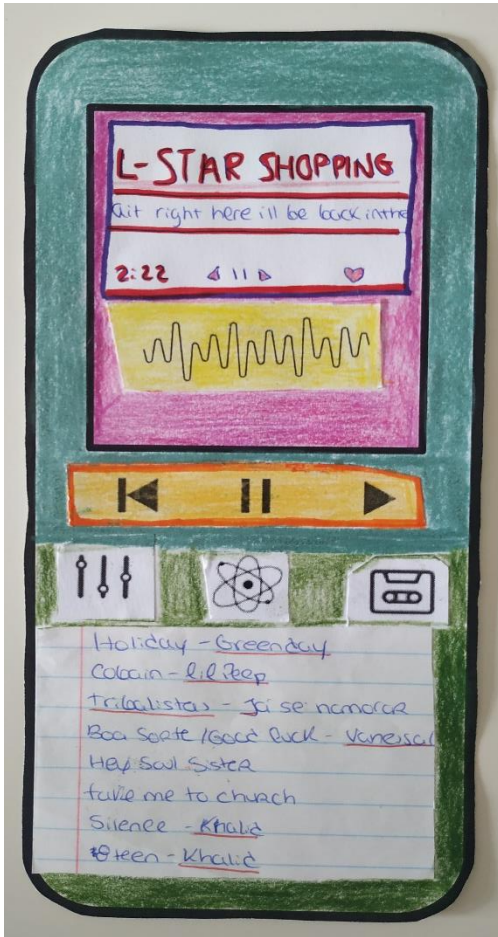 L-STAR SHOPPING
ait right here ill be back inthe
2:22
Holiday - Greenday
Cobain - lil Peep
Tribalistas - Já sei namorar
Boa Sorte / Good luck - Vanessa
Hey Soul Sister
take me to church
Silence - Khalid
8teen - Khalid